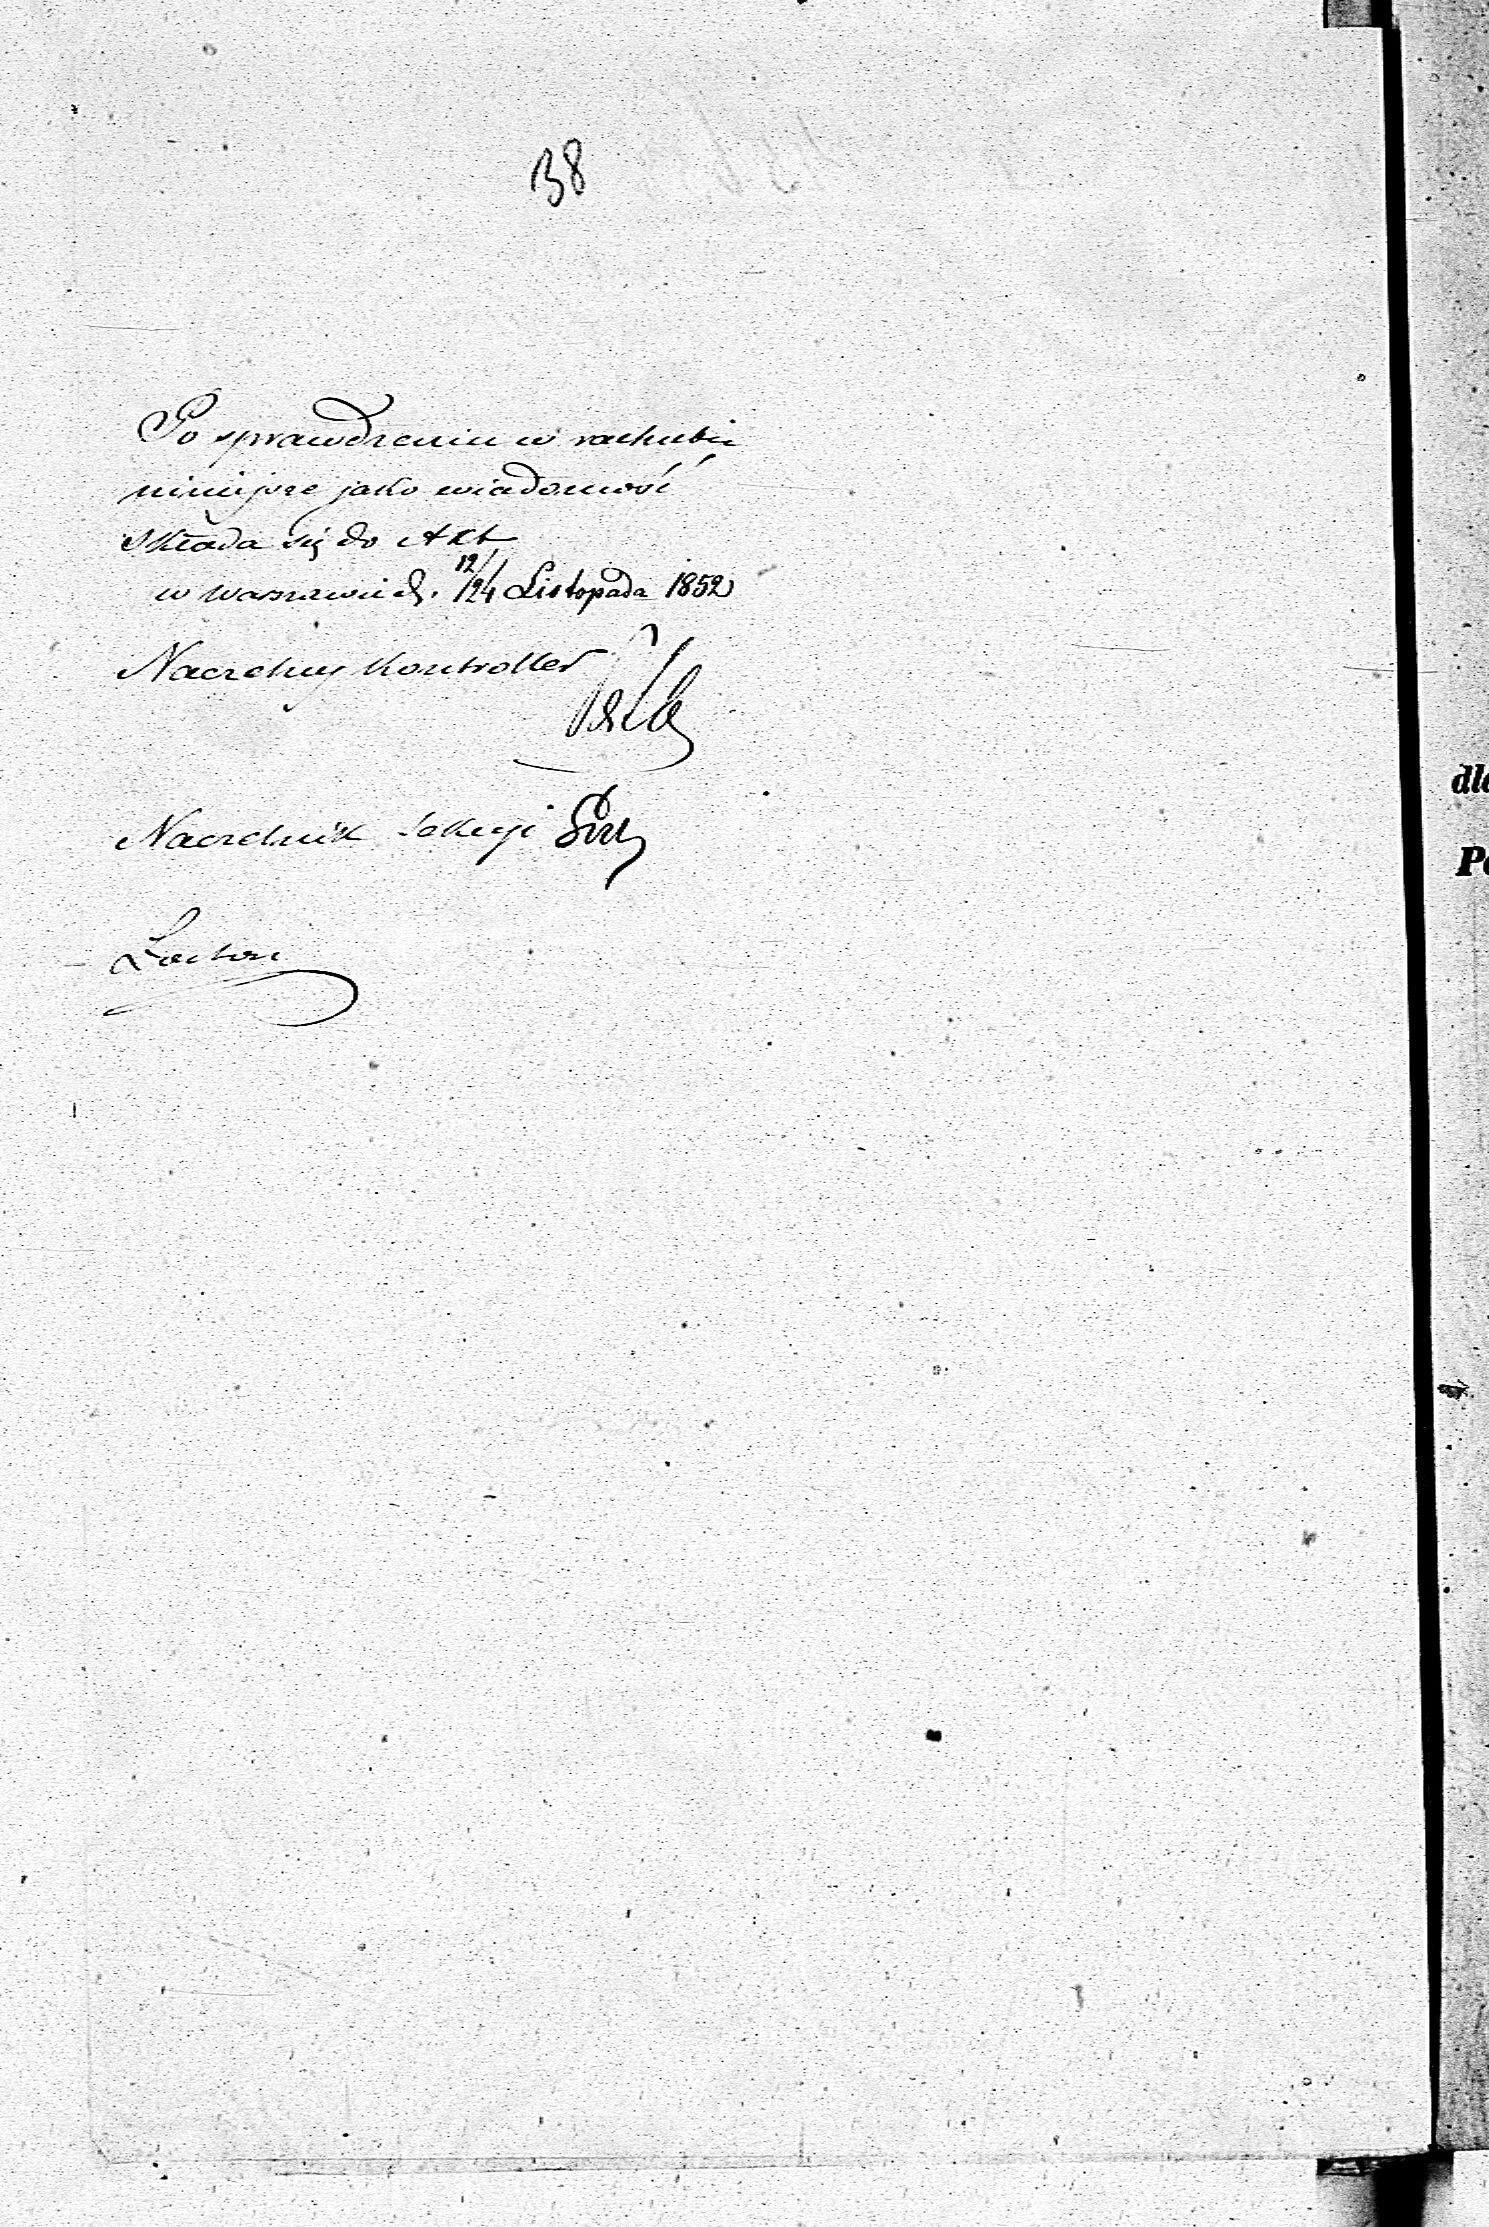 38
Po sprawdzeniu w rachubie
niniejsze jako wiadomość
składa się do Akt
w Warszawie d. 12/24 Listopada 1852
Naczelny Kontroller
Naczelnik Sekcyi
dla
Po